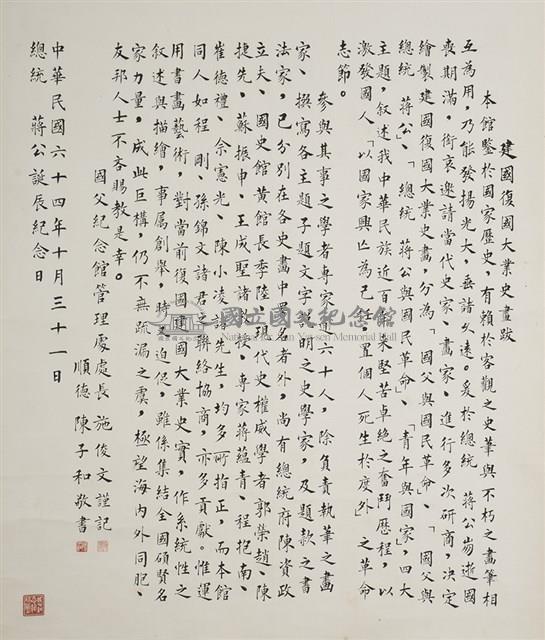 建國復國大業史畫跋
本館鑒於國家歷史,有賴於客觀之史筆與不朽之畫筆相
互為用,乃能發揚光大,垂諸久遠。爰於總統 蔣公崩逝國
喪期滿,銜哀邀請當代史家、畫家、進行多次研商,決定
繪製建國復國大業史畫,分為「國父與國民革命」、「國父與
總統 蔣公」、「總統 蔣公與國民革命」、「青年與國家」四大
主題,叙述我中華民族近百年來堅苦卓絕之奮鬥歷程,以
激發國人「以國家興亡為己任,置個人死生於度外」之革命
志節。
參與其事之學者專家近六十人,除負責執筆之畫
家、撰寫各主題子題文字說明之史學家,及題款之書
法家,已分別在各史畫中署名者外,尚有總統府陳資政
立夫、國史館黃館長季陸、現代史權威學者郭榮趙、陳
捷先、蘇振申、王成聖諸教授、專家蔣蘊青、程抱南、
崔德禮、佘憲光、陳小凌諸先生,均多所指正,而本館
同人如程剛、孫錦文諸君之聯絡協商,亦多貢獻。惟運
用書畫藝術,對當前復國建國大業史實,作系統性之
叙述與描繪,事屬創舉,時又迫促,雖係集結全國碩賢名
家力量,成此巨構,仍不無疏漏之虞,極望海內外同胞、
友邦人士不吝賜教是幸。
國父紀念館管理處處長 施俊文謹記
順德 陳子和敬書
中華民國六十四年十月三十一日
總統 蔣公誕辰紀念日
國立國父紀念館
National Dr. Sun Yat-sen Memorial Hall